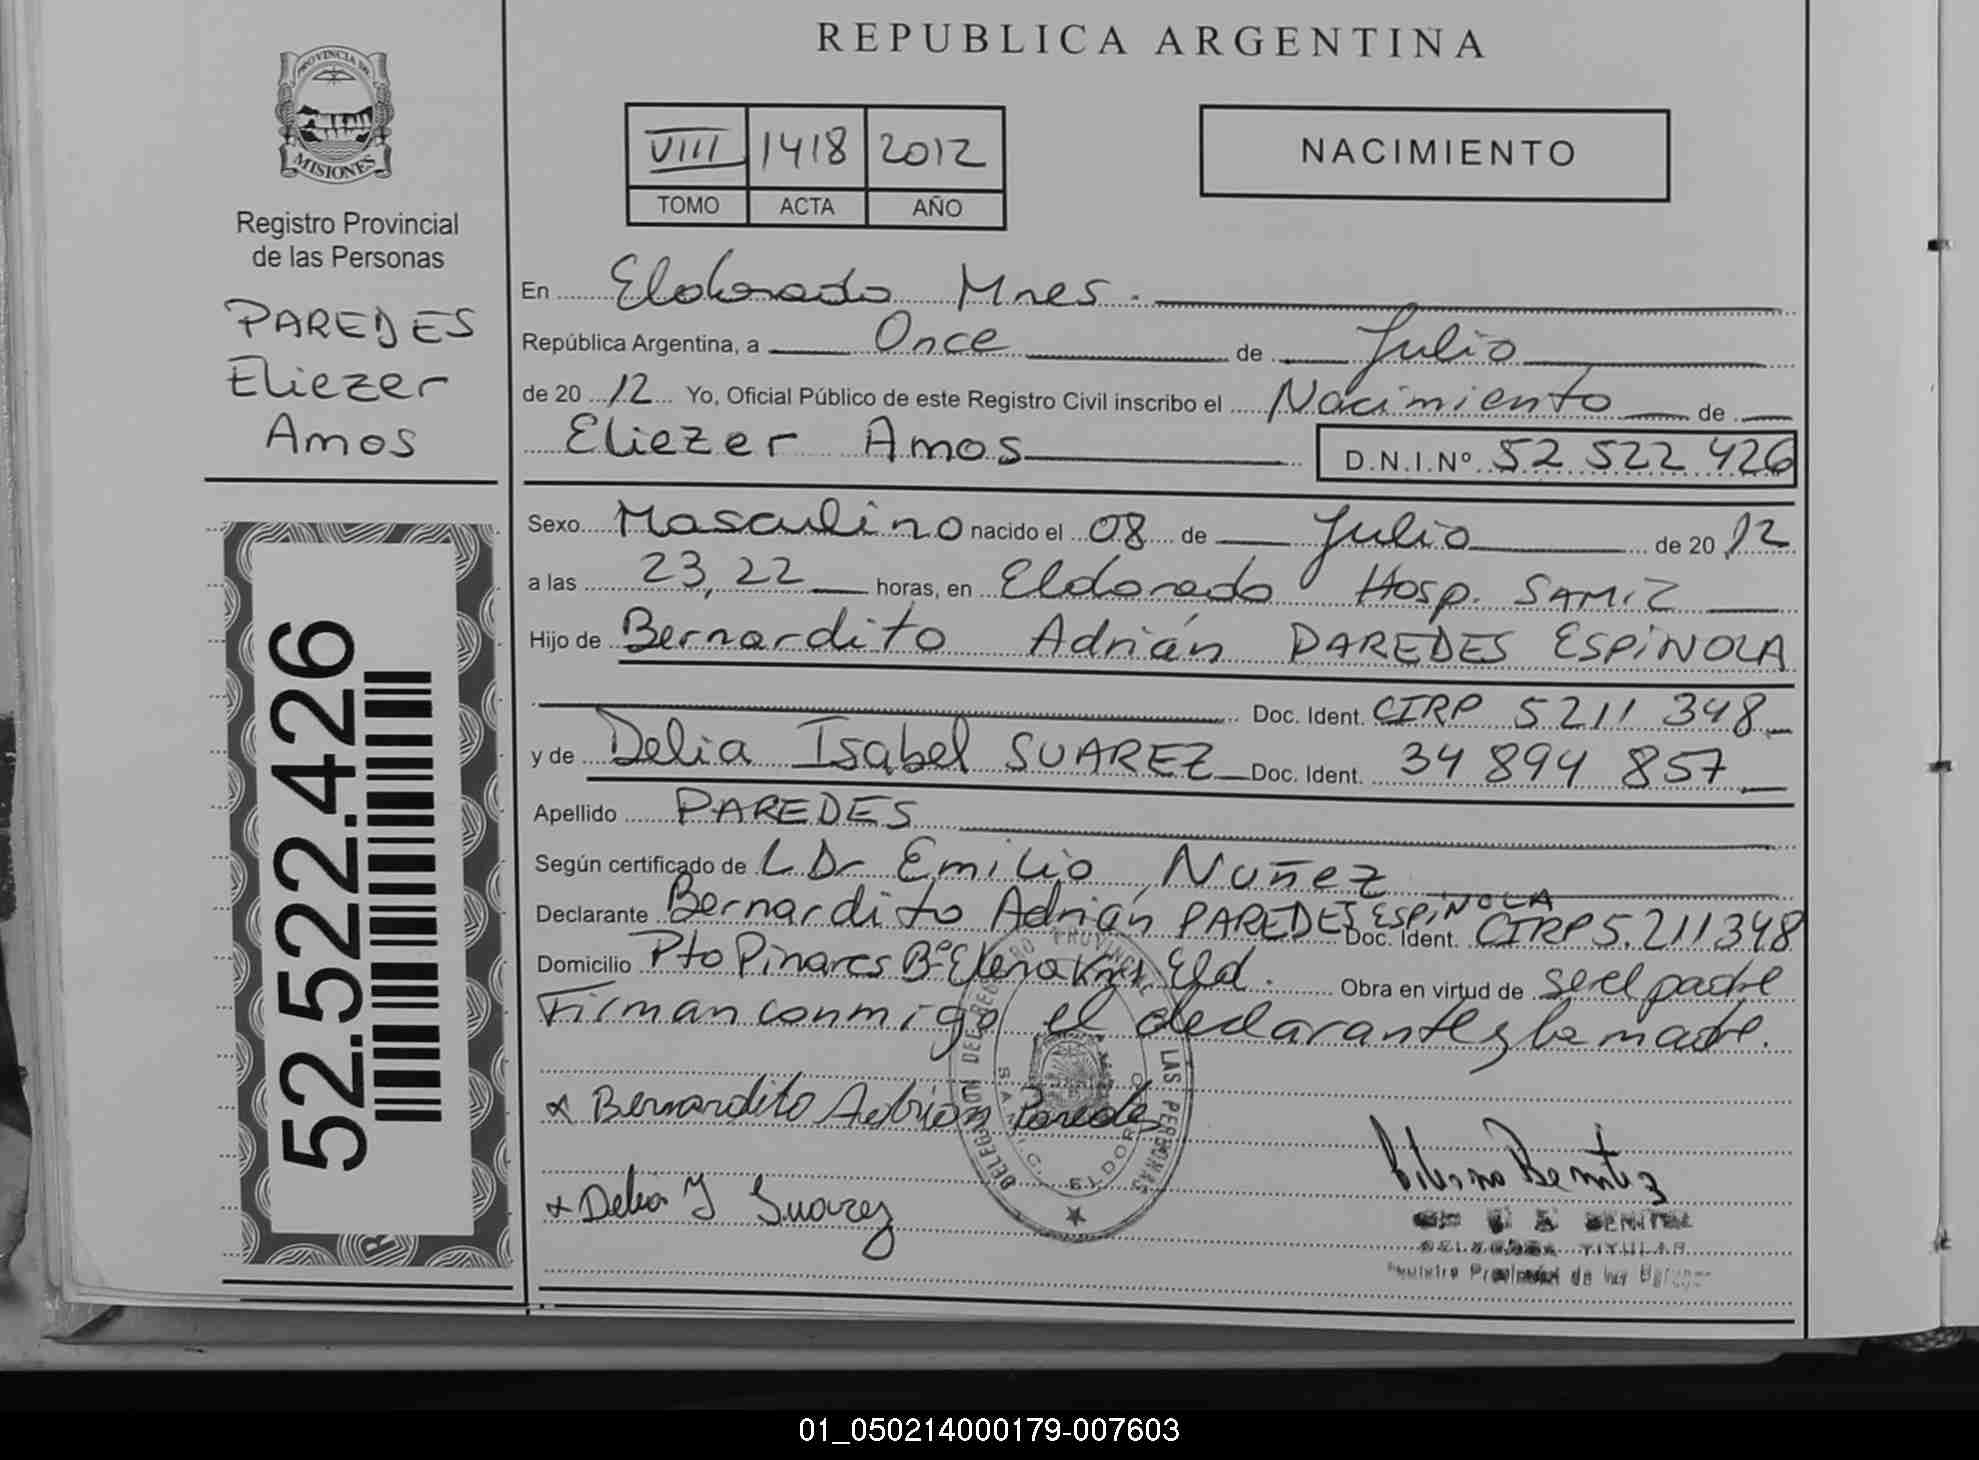 REPUBLICA ARGENTINA
PROVINCIA DE
MISIONES
Registro Provincial
de las Personas
PAREDES
Eliezer
Amos
52.522.426
VIII 1418 2012
TOMO ACTA AÑO
NACIMIENTO
En Eldorado Mnes.
República Argentina, a Once de Julio
de 2012 Yo, Oficial Público de este Registro Civil inscribo el Nacimiento de
Eliezer Amos D.N.I.Nº 52 522 426
Sexo Masculino nacido el 08 de Julio de 2012
a las 23,22 horas, en Eldorado Hosp. SAMIC
Hijo de Bernardito Adrián PAREDES ESPINOLA
Doc. Ident. CIRP 5211 348
y de Delia Isabel SUAREZ Doc. Ident. 34 894 857
Apellido PAREDES
Según certificado de L Dr Emilio Nuñez
Declarante Bernardito Adrián PAREDES ESPINOLA Doc. Ident. CIRP 5.211348
Domicilio Pto Pinares Bº Elena Eld. Obra en virtud de ser el padre
Firman conmigo el declarante y la madre.
x Bernardito Adrian Paredes
x Delia Y Suarez
Benitez
BENITEZ
TITULAR
Registro Provincial de las
ELDORADO
01_050214000179-007603